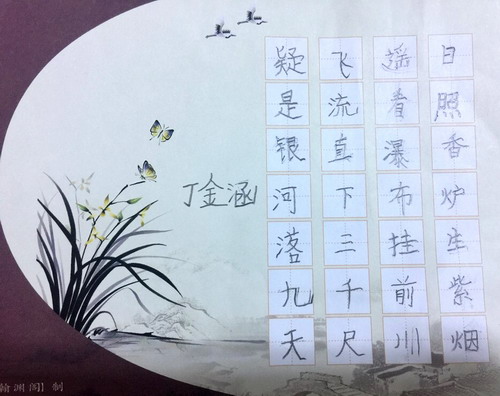 日照香炉生紫烟
遥看瀑布挂前川
飞流直下三千尺
疑是银河落九天
丁金涵
翰渊阁】制